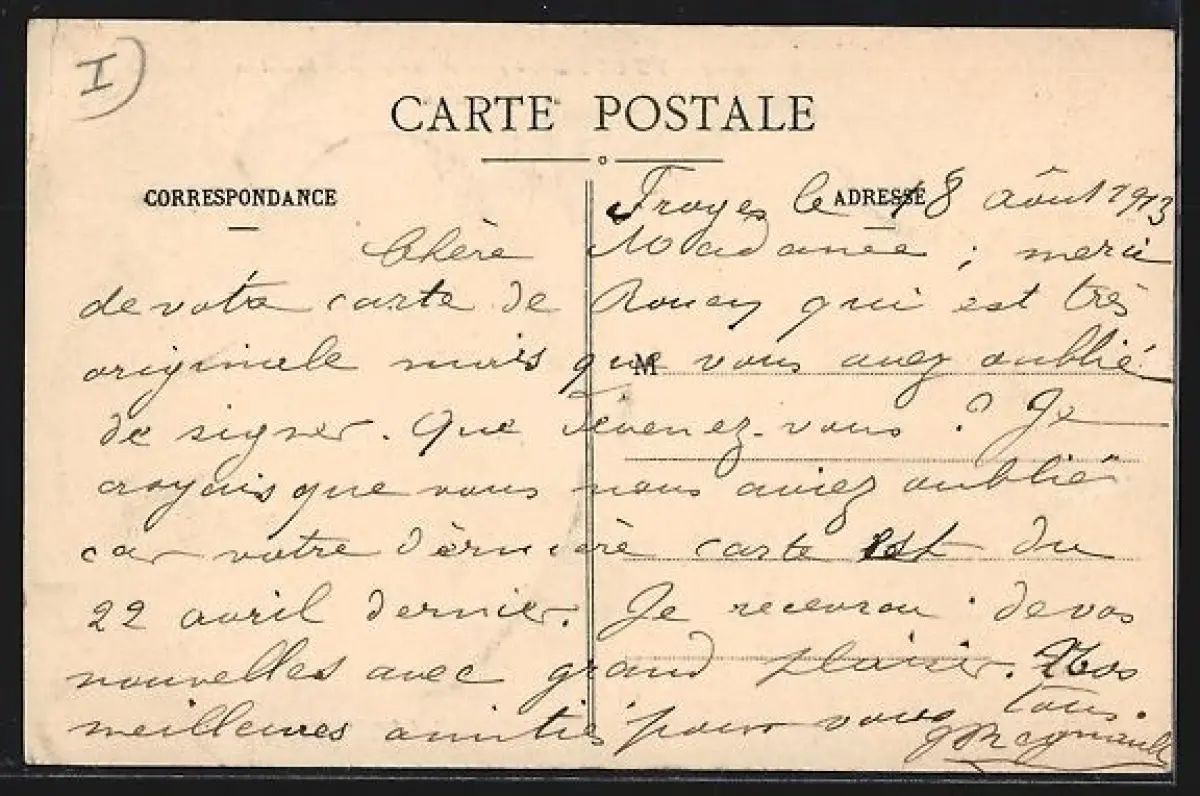 I)
CARTE POSTALE
CORRESPONDANCE
ADRESSE
Troyes le 18 août 1913
Chère Madame ; merci
de votre carte de Rouen qui est très
originele mais que vous avez oublié
M
de signer. Que devenez-vous ? Je
croyais que vous nous aviez oublié
car votre dernière carte est du
22 avril dernier. Je recevrai de vos
nouvelles avec grand plaisir. Nos
meilleures amitiés pour vous tous.